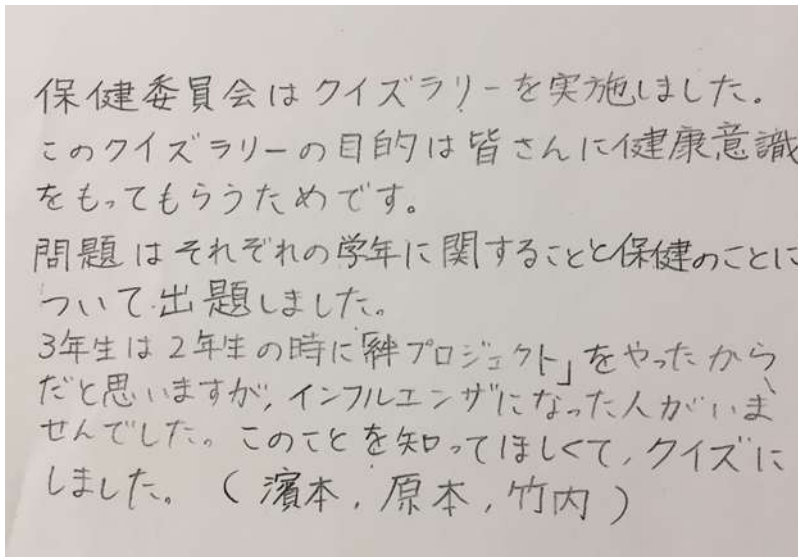 保健委員会はクイズラリーを実施しました。
このクイズラリーの目的は皆さんに健康意識
をもってもらうためです。
問題はそれぞれの学年に関することと保健のことに
ついて出題しました。
3年生は2年生の時に「絆プロジェクト」をやったから
だと思いますが、インフルエンザになった人がいま
せんでした。このことを知ってほしくて、クイズに
しました。(濱本,原本,竹内)